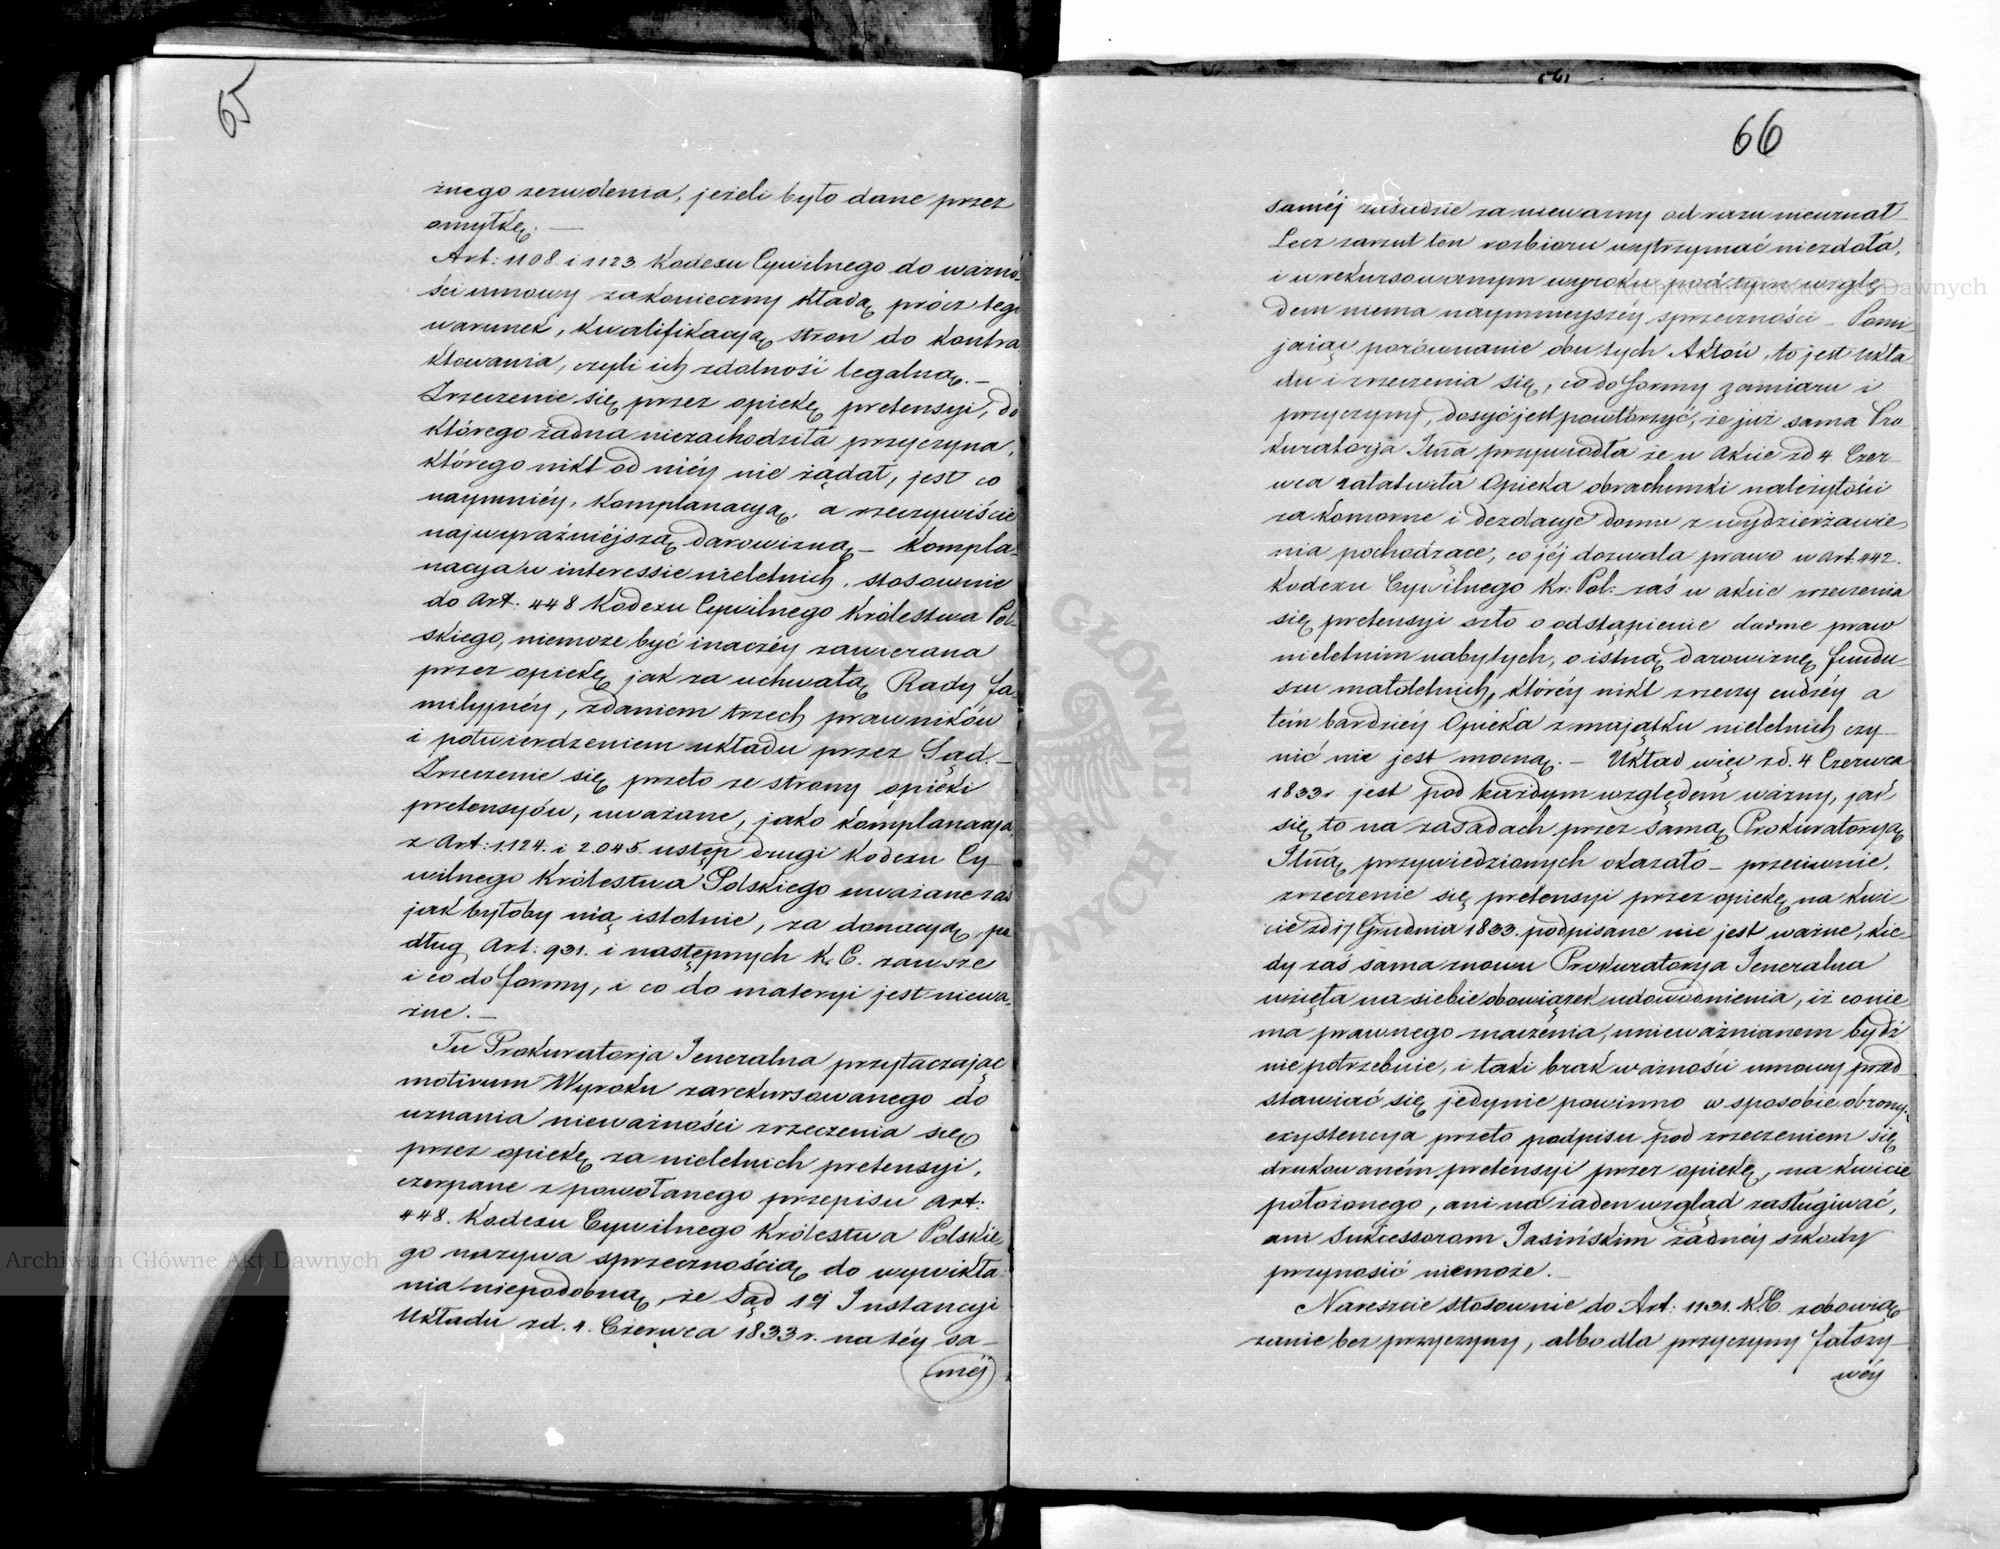 65
żnego zezwolenia, jeżeli było dane przez
omyłkę. —
Art: 1108 i 1123 Kodexu Cywilnego do ważno
ści umowy za konieczny kładą prócz tego
warunek, kwalifikacyą stron do kontra
ktowania, czyli ich zdolność legalną. —
Zrzeczenie się przez opiekę pretensyi, do
którego żadna niezachodziła przyczyna,
którego nikt od niéy nie żądał, jest co
naymniéy, komplanacyą, a rzeczywiście
najwyraźniéjszą darowizną — Kompla-
nacya w interessie nieletnich, stosownie
do Art: 448 Kodexu Cywilnego Królestwa Pol-
skiego, niemoże być inaczéy zawierana
przez opiekę jak za uchwałą Rady fa-
milyjnéy, zdaniem trzech prawników
i potwierdzeniem układu przez Sąd. —
Zrzeczenie się przeto ze strony opieki
pretensyów, uważane, jako komplanacya
z Art: 1124. i 2.045. ustęp drugi Kodexu Cy-
wilnego Królestwa Polskiego uważane zaś
jak byłoby nią istotnie, za donacyą, po
dług Art: 931. i następnych K. C. zawsze
i co do formy, i co do materyi jest niewa-
żne. —
Tu Prokuratorja Jeneralna przytaczając
motivum Wyroku zarekursowanego do
uznania nieważności zrzeczenia się
przez opiekę za nieletnich pretensyi,
czerpane z powołanego przepisu Art:
448. Kodexu Cywilnego Królestwa Polskie
go nazywa sprzecznością do wywikła-
nia niepodobną, że Sąd 1éj Instancyi
Układu zd. 4. Czerwca 1833 r. na téy sa-
méj
66
saméj zasadzie za nieważny od razu nieuznał
Lecz zarzut ten rozbioru wytrzymać niezdoła,
i w rekursowanym wyroku pod tym wzglę
dem niema naymnieyszéy sprzeczności — Pomi-
jaiąc porównanie obu tych Aktów, to jest ukła
du i zrzeczenia się, co do formy zamiaru i
przyczyny, dosyć jest powtórzyć, że już sama Pro
kuratorja Jłna przywiodła że w akcie zd 4 Czer-
wca załatwiła Opieka obrachunki należytości
za komorne i dezolacje domu z wydzierżawie
nia pochodzące, co jéj dozwala prawo w Art: 442.
Kodexu Cywilnego Kr: Pol: zaś w akcie zrzeczenia
się pretensyi szło o odstąpienie darme praw
nieletnim nabytych, o istną darowiznę fundu-
szu małoletnich, któréy nikt z rzeczy cudzéy a
tém bardziéy Opieka z majątku nieletnich czy-
nić nie jest mocną. — Układ więc zd. 4 Czerwca
1833 r jest pod każdym względem ważny, jak
się to na zasadach przez samą Prokuratoryą
Jłną przywiedzionych okazało — przeciwnie,
zrzeczenie się pretensyi przez opiekę na kwi-
cie zd 17 Grudnia 1833. podpisane nie jest ważne, kie-
dy zaś sama znowu Prokuratorya Jeneralna
wzięła na siebie obowiązek udowodnienia, iż co nie
ma prawnego znaczenia, unieważnianem bydź
nie potrzebuie, i taki brak ważności umowy przed-
stawiać się jedynie powinno w sposobie obrony.
exystencya przeto podpisu pod zrzeczeniem się
drukowaném pretensyi przez opiekę, na kwicie
położonego, ani na żaden wzgląd zasługiwać,
ani Sukcessorom Jasińskim żadnéj szkody
przynosić niemoże. —
Nareszcie stosownie do Art: 1131. K.C. zobowią
zanie bez przyczyny, albo dla przyczyny fałszy-
wéj
Archiwum Główne Akt Dawnych
Archiwum Główne Akt Dawnych